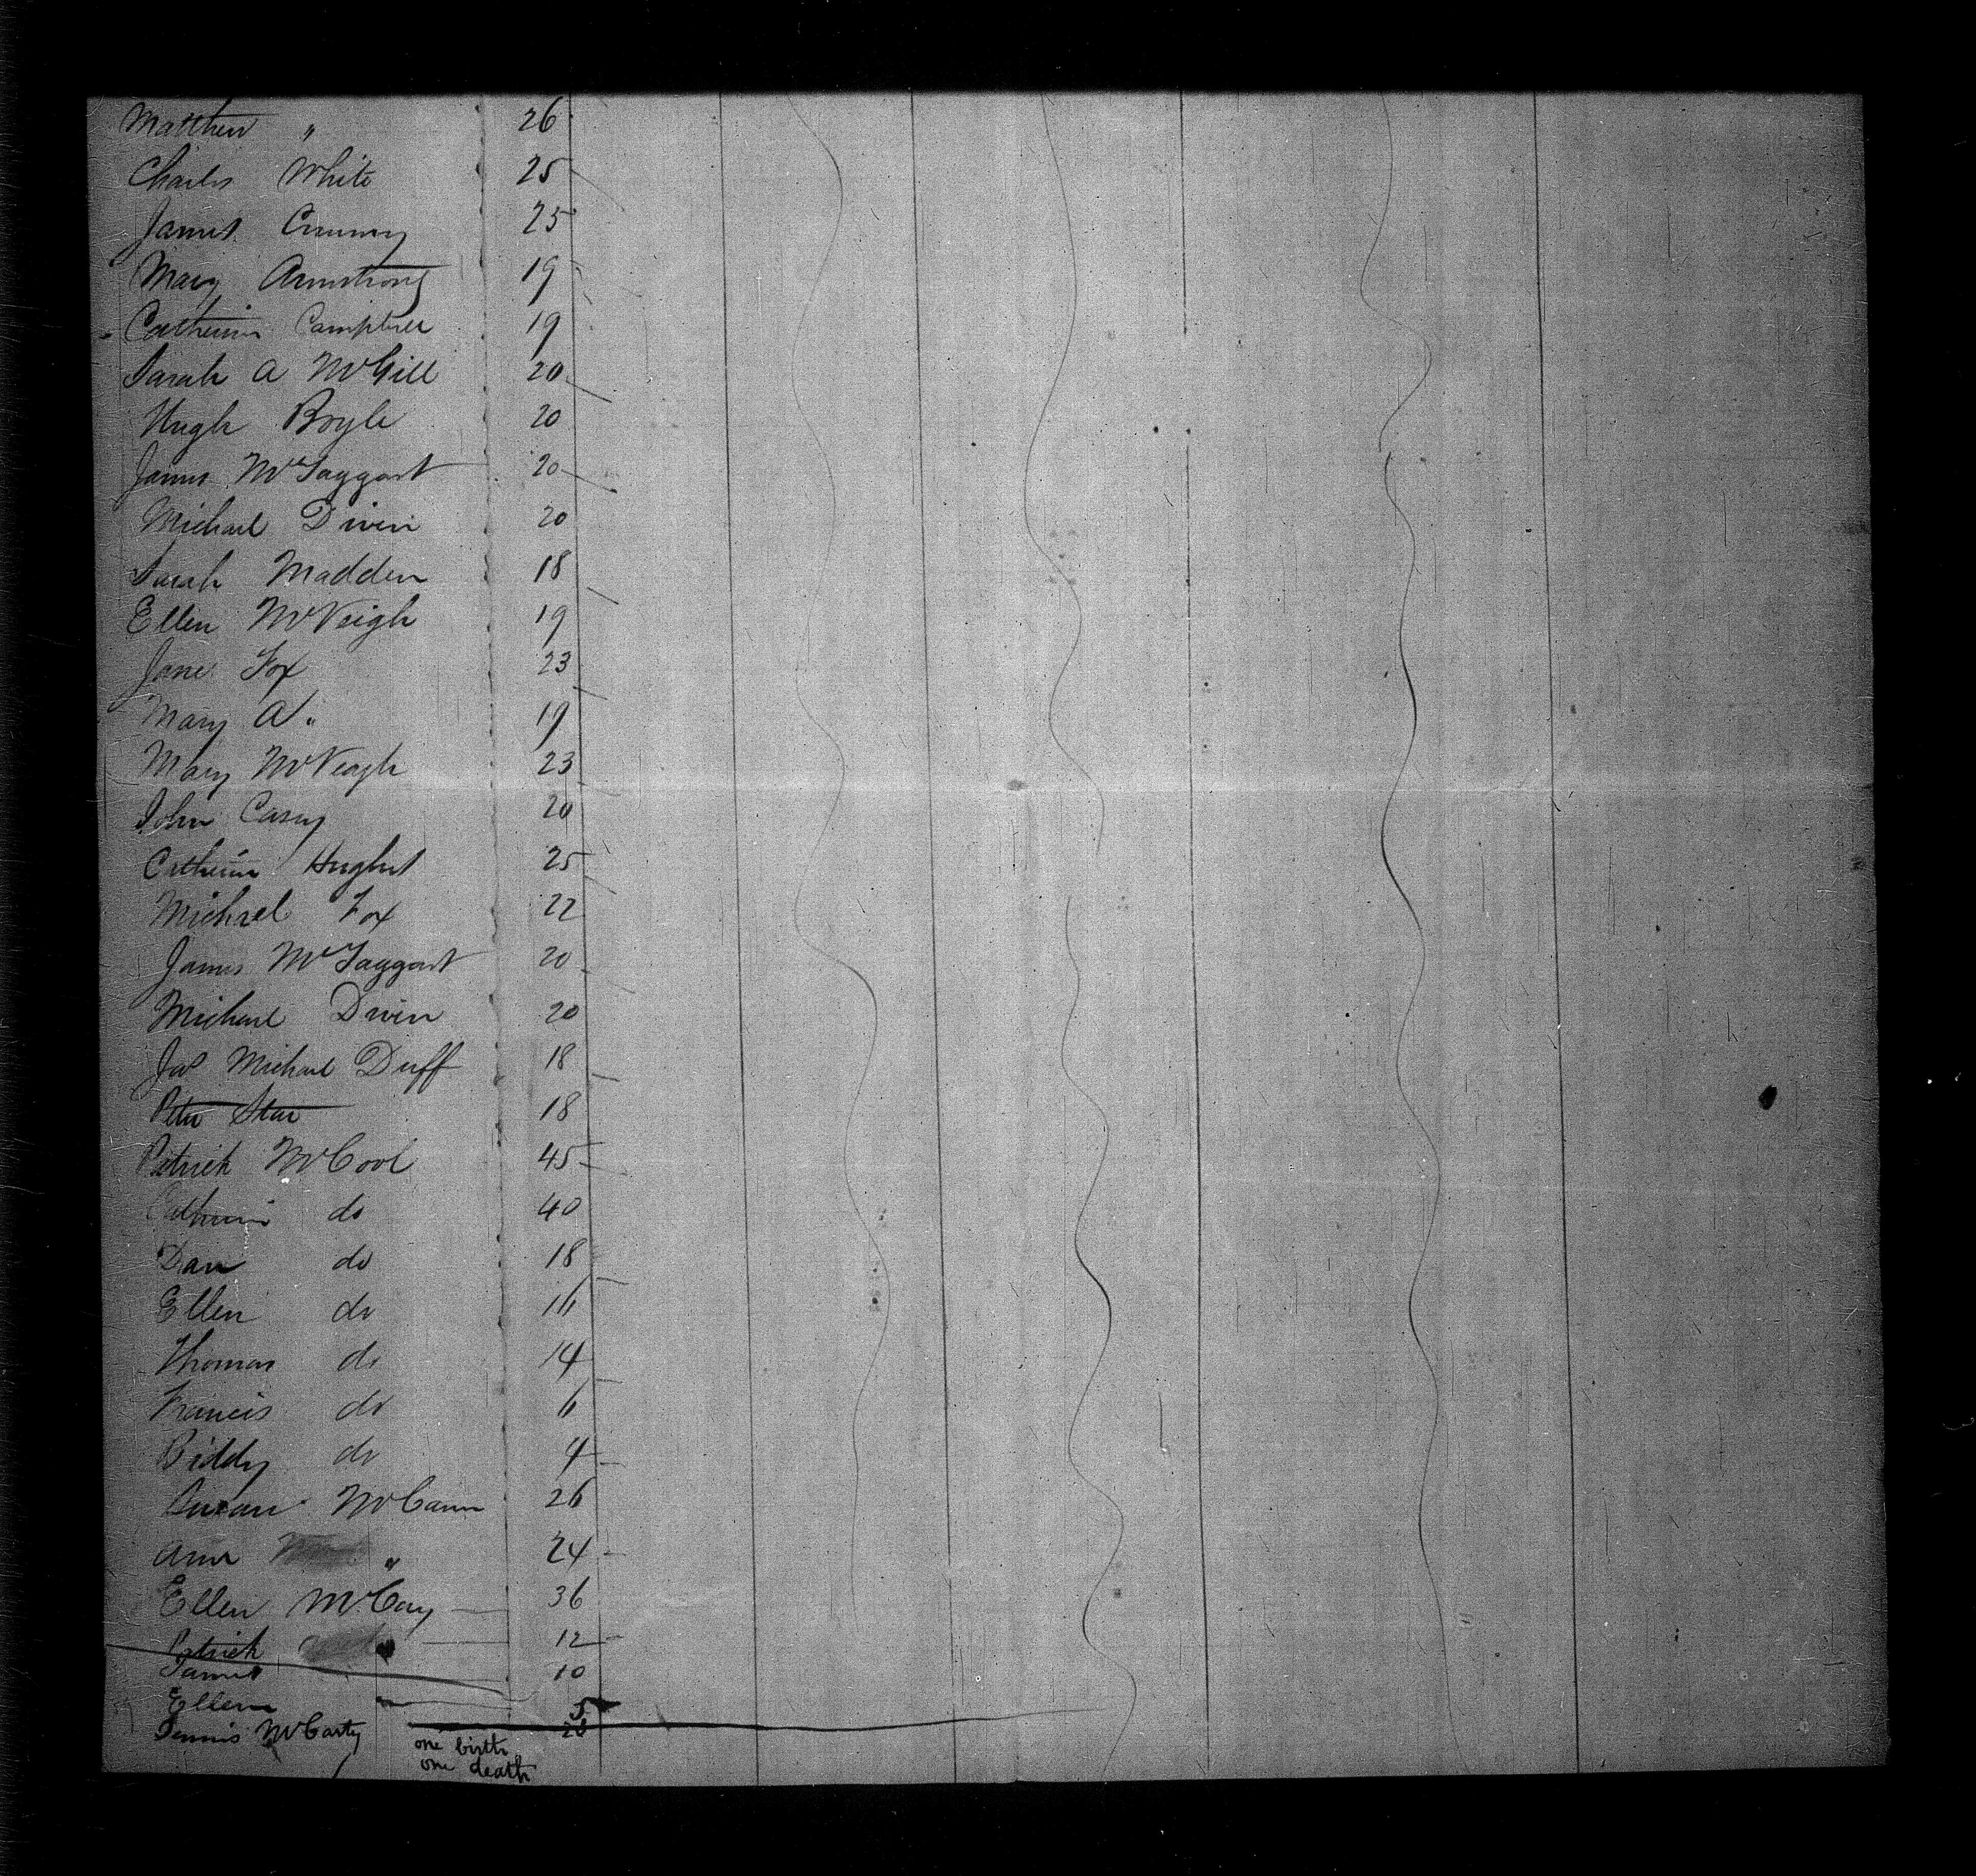 Matthew " 26
Charles White 25
James 25
Mary Armstrong 19
Catherine Campbell 19
Sarah A McGill 20
Hugh Boyle 20
James McTaggart 20
Michael Divin 20
Sarah Madden 18
Ellen McVeigh 19
Jane Fox 23
Mary A " 19
Mary McVeagh 23
John Casey 20
Catherine Hughes 25
Michael Fox 22
James McTaggart 20
Michael Divin 20
Jas Michael Duff 18
Peter Star 18
Patrick McCool 45
Catherine do 40
Dan do 18
Ellen do 16
Thomas do 14
Francis do 6
Biddy do 4
Susan McCann 26
Ann " 24
Ellen McCay 36
Patrick 12
James 10
Ellen 5
Dennis McCarty
one birth
one death